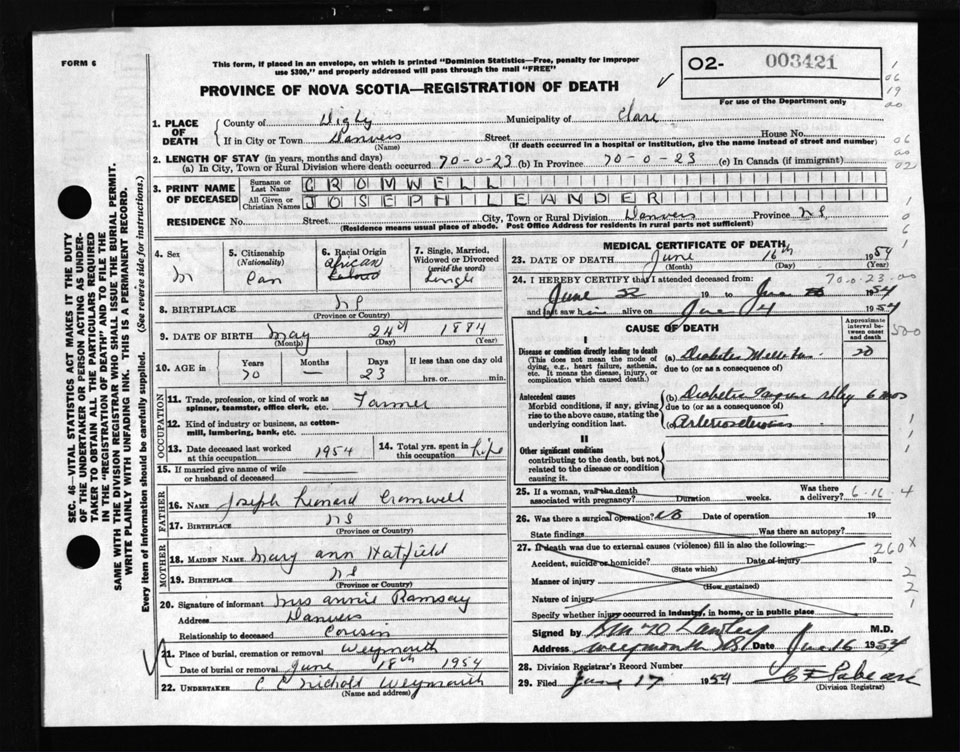 FORM 6
This form, if placed in an envelope, on which is printed "Dominion Statistics—Free, penalty for improper
use $300," and properly addressed will pass through the mail "FREE"
PROVINCE OF NOVA SCOTIA—REGISTRATION OF DEATH
O2- 003421
For use of the Department only
1. PLACE OF DEATH
County of Digby Municipality of Clare
If in City or Town Danvers Street House No.
(Name) (If death occurred in a hospital or institution, give the name instead of street and number)
2. LENGTH OF STAY (in years, months and days)
(a) In City, Town or Rural Division where death occurred 70-0-23 (b) In Province 70-0-23 (c) In Canada (if immigrant)
3. PRINT NAME OF DECEASED
Surname or Last Name CROMWELL
All Given or Christian Names JOSEPH LEANDER
RESIDENCE No. Street City, Town or Rural Division Danvers Province NS
(Residence means usual place of abode. Post Office Address for residents in rural parts not sufficient)
4. Sex M
5. Citizenship (Nationality) Can
6. Racial Origin African
7. Single, Married, Widowed or Divorced (write the word) Single
8. BIRTHPLACE NS
(Province or Country)
9. DATE OF BIRTH May 24th 1884
(Month) (Day) (Year)
10. AGE in Years Months Days If less than one day old
70 — 23 hrs. or min.
OCCUPATION
11. Trade, profession, or kind of work as spinner, teamster, office clerk, etc. Farmer
12. Kind of industry or business, as cotton-mill, lumbering, bank, etc.
13. Date deceased last worked at this occupation 1954
14. Total yrs. spent in this occupation Life
15. If married give name of wife or husband of deceased —
FATHER
16. NAME Joseph Leonard Cromwell
17. BIRTHPLACE NS
(Province or Country)
MOTHER
18. MAIDEN NAME Mary Ann Hatfield
19. BIRTHPLACE NS
(Province or Country)
20. Signature of informant Mrs Annie Ramsay
Address Danvers
Relationship to deceased Cousin
21. Place of burial, cremation or removal Weymouth
Date of burial or removal June 18th 1954
22. UNDERTAKER C C Nichols Weymouth
(Name and address)
MEDICAL CERTIFICATE OF DEATH
23. DATE OF DEATH June 16th 1954
(Month) (Day) (Year)
24. I HEREBY CERTIFY that I attended deceased from: 70-0-23-00
June 19 to June 1954
and last saw him alive on June 4 1954
CAUSE OF DEATH
Approximate interval between onset and death
I
Disease or condition directly leading to death
(This does not mean the mode of dying, e.g., heart failure, asthenia, etc. It means the disease, injury, or complication which caused death.)
(a) Diabetes Mellitus 20
due to (or as a consequence of)
Antecedent causes
Morbid conditions, if any, giving rise to the above cause, stating the underlying condition last.
(b) Diabetic 6 mos
due to (or as a consequence of)
(c) Arteriosclerosis
II
Other significant conditions
contributing to the death, but not related to the disease or condition causing it.
25. If a woman, was the death associated with pregnancy? Duration weeks. Was there a delivery? 6-16-4
26. Was there a surgical operation? No Date of operation 19
State findings Was there an autopsy?
27. If death was due to external causes (violence) fill in also the following: 260x
Accident, suicide or homicide? Date of injury 19
(State which)
Manner of injury
(How sustained)
Nature of injury
Specify whether injury occurred in industry, in home, or in public place
Signed by M.D.
Address Weymouth NS Date June 16 1954
28. Division Registrar's Record Number
29. Filed June 17 1954
(Division Registrar)
SEC. 46—VITAL STATISTICS ACT MAKES IT THE DUTY
OF THE UNDERTAKER OR PERSON ACTING AS UNDER-
TAKER TO OBTAIN ALL THE PARTICULARS REQUIRED
IN THE "REGISTRATION OF DEATH" AND TO FILE THE
SAME WITH THE DIVISION REGISTRAR WHO SHALL ISSUE THE BURIAL PERMIT.
WRITE PLAINLY WITH UNFADING INK. THIS IS A PERMANENT RECORD.
Every item of information should be carefully supplied. (See reverse side for instructions.)